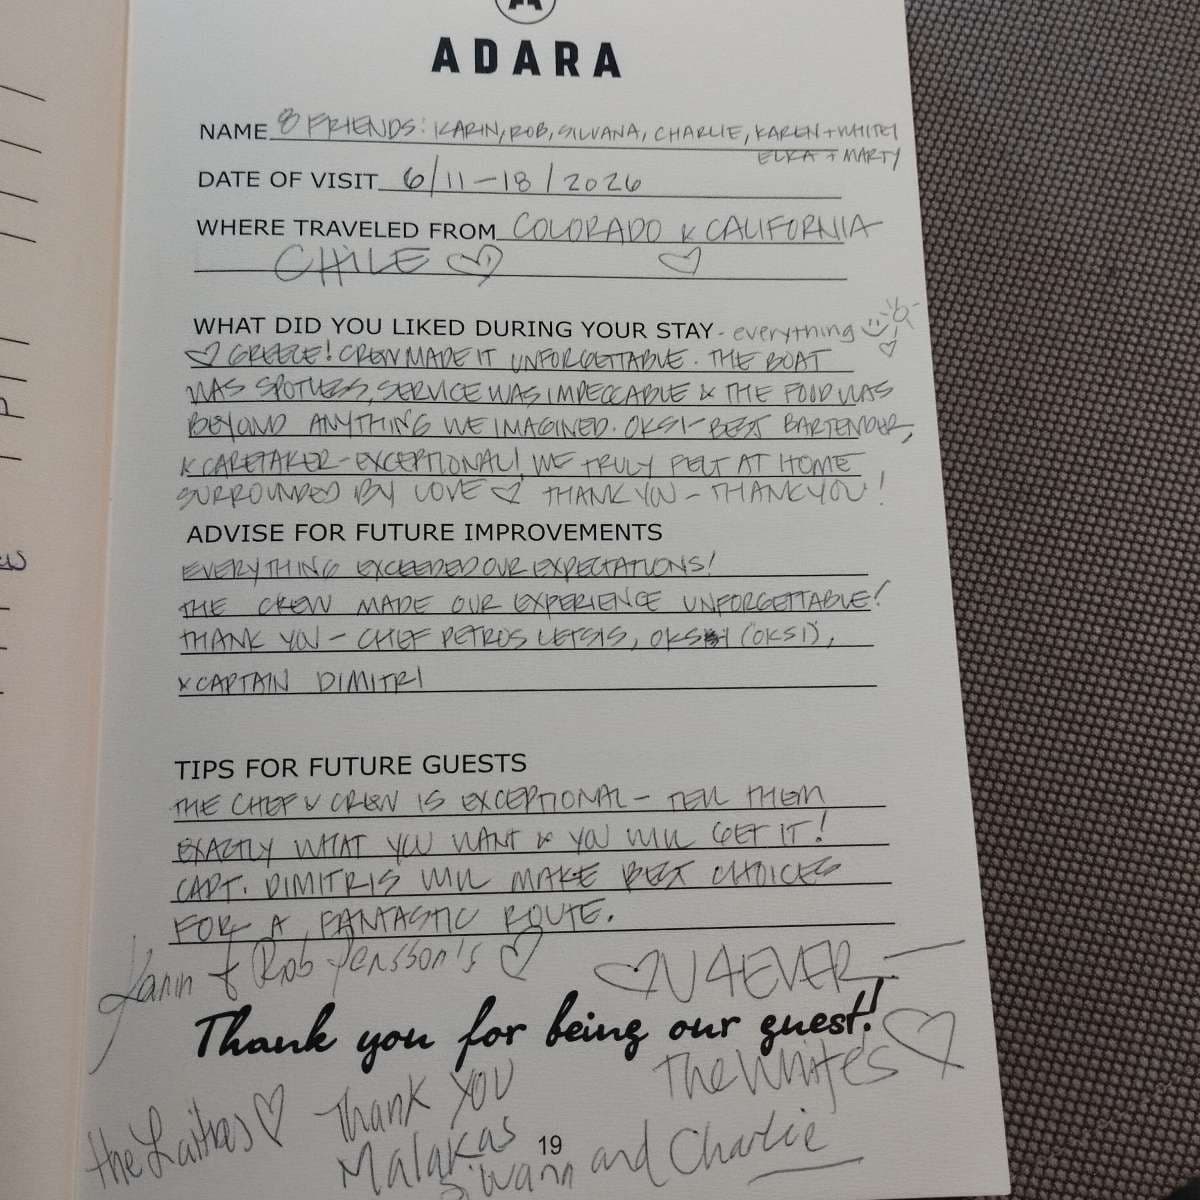 A
ADARA
NAME 8 FRIENDS: KARIN, ROB, SILVANA, CHARLIE, KAREN + WHITEY
ELKA + MARTY
DATE OF VISIT 6/11-18/2026
WHERE TRAVELED FROM COLORADO & CALIFORNIA
CHILE
WHAT DID YOU LIKED DURING YOUR STAY - everything
GREECE! CREW MADE IT UNFORGETTABLE. THE BOAT
WAS SPOTLESS, SERVICE WAS IMPECCABLE & THE FOOD WAS
BEYOND ANYTHING WE IMAGINED. OKSI-BEST BARTENDER,
& CARETAKER-EXCEPTIONAL! WE TRULY FELT AT HOME
SURROUNDED BY LOVE THANK YOU - THANK YOU!
ADVISE FOR FUTURE IMPROVEMENTS
EVERYTHING EXCEEDED OUR EXPECTATIONS!
THE CREW MADE OUR EXPERIENCE UNFORGETTABLE!
THANK YOU - CHEF PETROS LETSIS, (OKSI),
& CAPTAIN DIMITRI
TIPS FOR FUTURE GUESTS
THE CHEF & CREW IS EXCEPTIONAL - TELL THEM
EXACTLY WHAT YOU WANT & YOU WILL GET IT!
CAPT. DIMITRIS WILL MAKE BEST CHOICES
FOR A FANTASTIC ROUTE.
Karin & Rob Persson's
U 4EVER-
Thank you for being our guest!
The White's
the
Thank YOU
Malakas
19
and Charlie